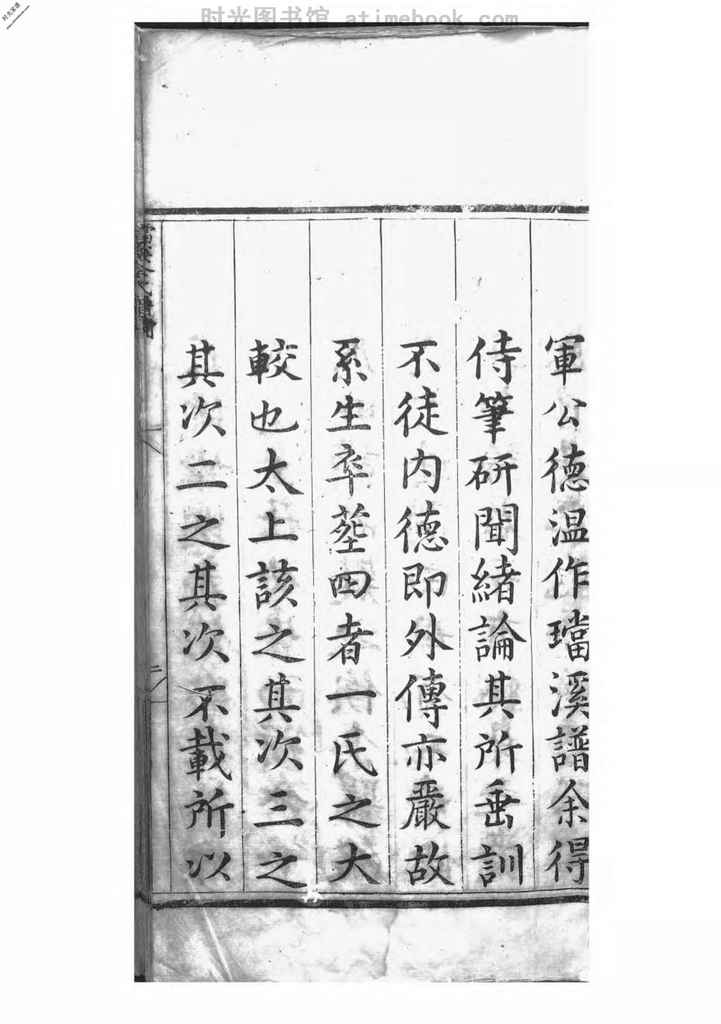 时光图书馆 atimebook.com
軍公德温作璫溪譜余得
侍筆研聞緒論其所垂訓
不徒内德即外傳亦嚴故
系生卒塟四者一氏之大
較也太上該之其次三之
其次二之其次不載所以
二